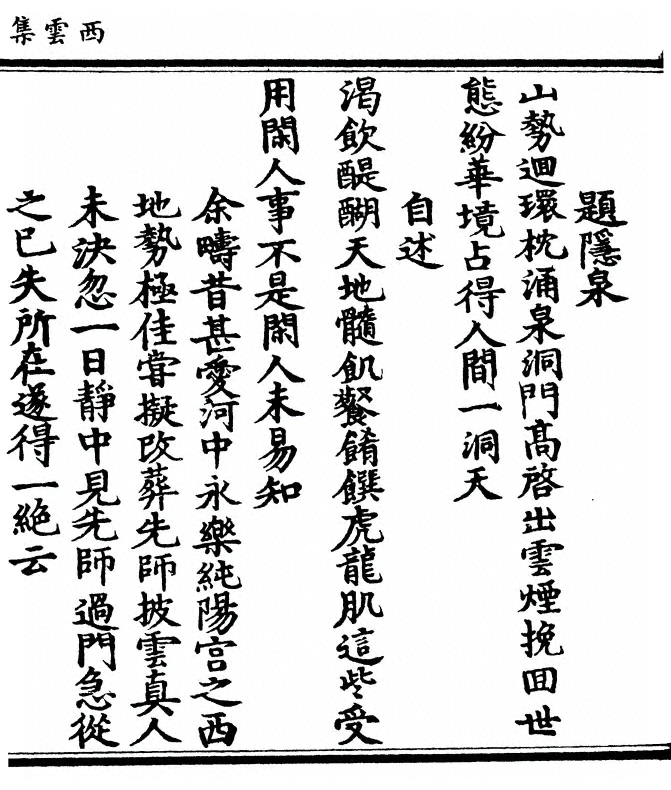 西雲集
題隱泉
山勢迴環枕涌泉洞門髙啓出雲煙挽回世
態紛華境占得人間一洞天
自述
渴飲醍醐天地髓飢餐餚饌虎龍肌這些受
用閑人事不是閑人未易知
余疇昔甚愛河中永樂純陽宫之西
地勢極佳甞擬改葬先師披雲真人
未決忽一日靜中見先師過門急從
之已失所在遂得一絶云